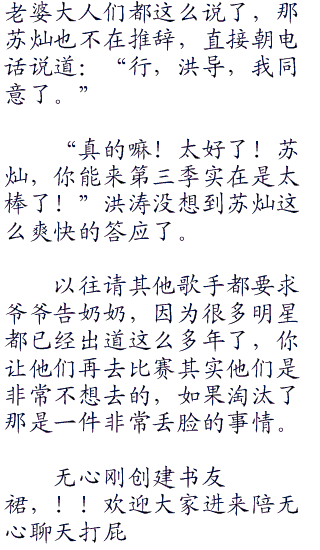 老婆大人们都这么说了，那
苏灿也不在推辞，直接朝电
话说道：“行，洪导，我同
意了。”
“真的嘛！太好了！苏
灿，你能来第三季实在是太
棒了！”洪涛没想到苏灿这
么爽快的答应了。
以往请其他歌手都要求
爷爷告奶奶，因为很多明星
都已经出道这么多年了，你
让他们再去比赛其实他们是
非常不想去的，如果淘汰了
那是一件非常丢脸的事情。
无心刚创建书友
裙，！！欢迎大家进来陪无
心聊天打屁